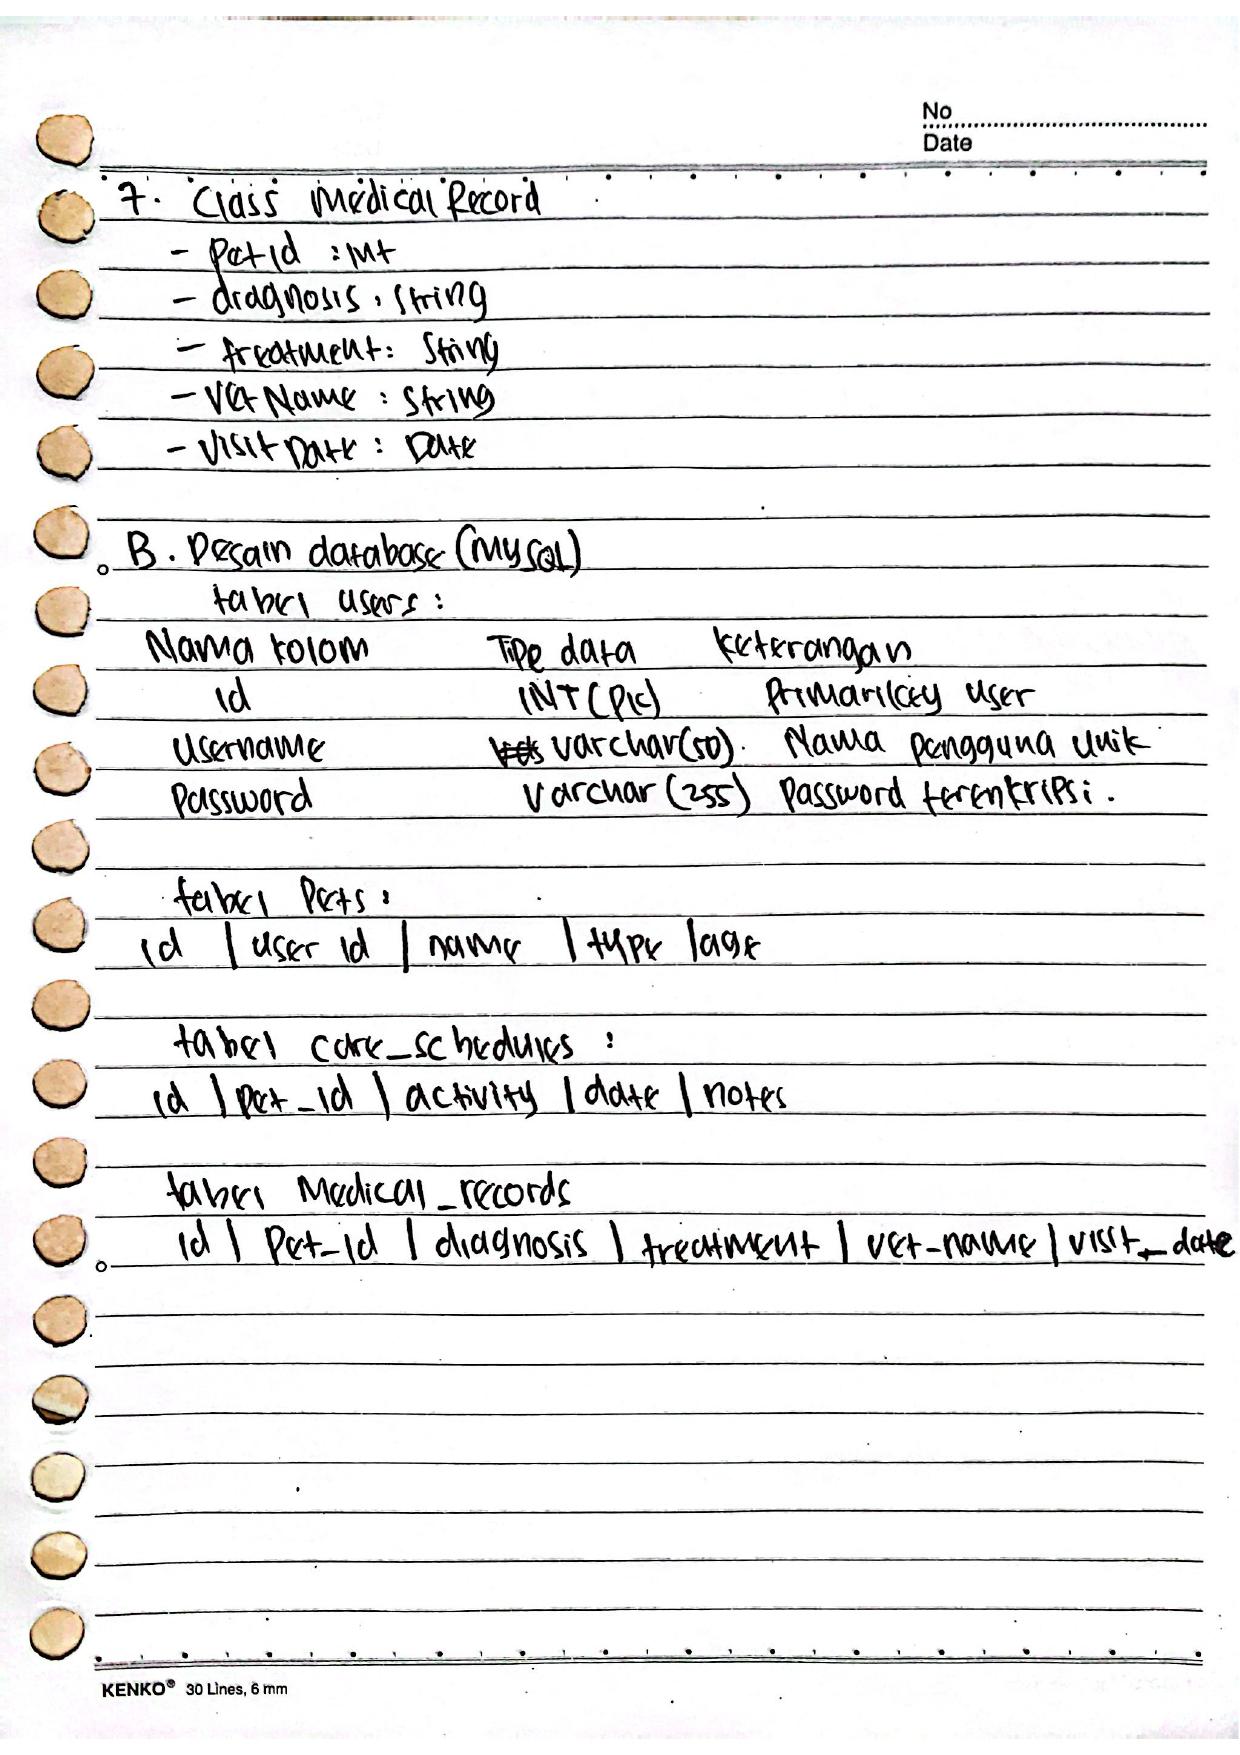 No
Date
7. Class Medical Record
- Pet Id : Int
- diagnosis : String
- treatment : String
- Vet Name : String
- Visit Date : Date
B. Desain database (MySQL)
tabel users :
Nama kolom Tipe data keterangan
id INT (PK) Primarikey user
Username varchar(50). Nama pengguna unik
Password Varchar (255) Password terenkripsi.
tabel Pets :
id | user id | name | type | age
tabel care_schedules :
id | pet_id | activity | date | notes
tabel Medical_records
id | Pet_id | diagnosis | treatment | vet-name | visit_date
KENKO® 30 Lines, 6 mm